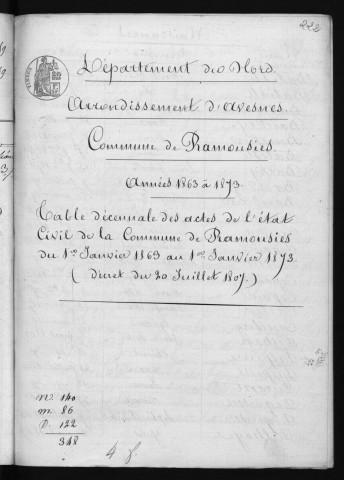 222
Département du Nord.
Arrondissement d'Avesnes.
Commune de Ramousies.
Années 1863 à 1873
Table décennale des actes de l'état
Civil de la Commune de Ramousies
du 1er Janvier 1863 au 1er Janvier 1873.
(décret du 20 Juillet 1807.)
N. 140
M. 86
D. 122
348
4 f.